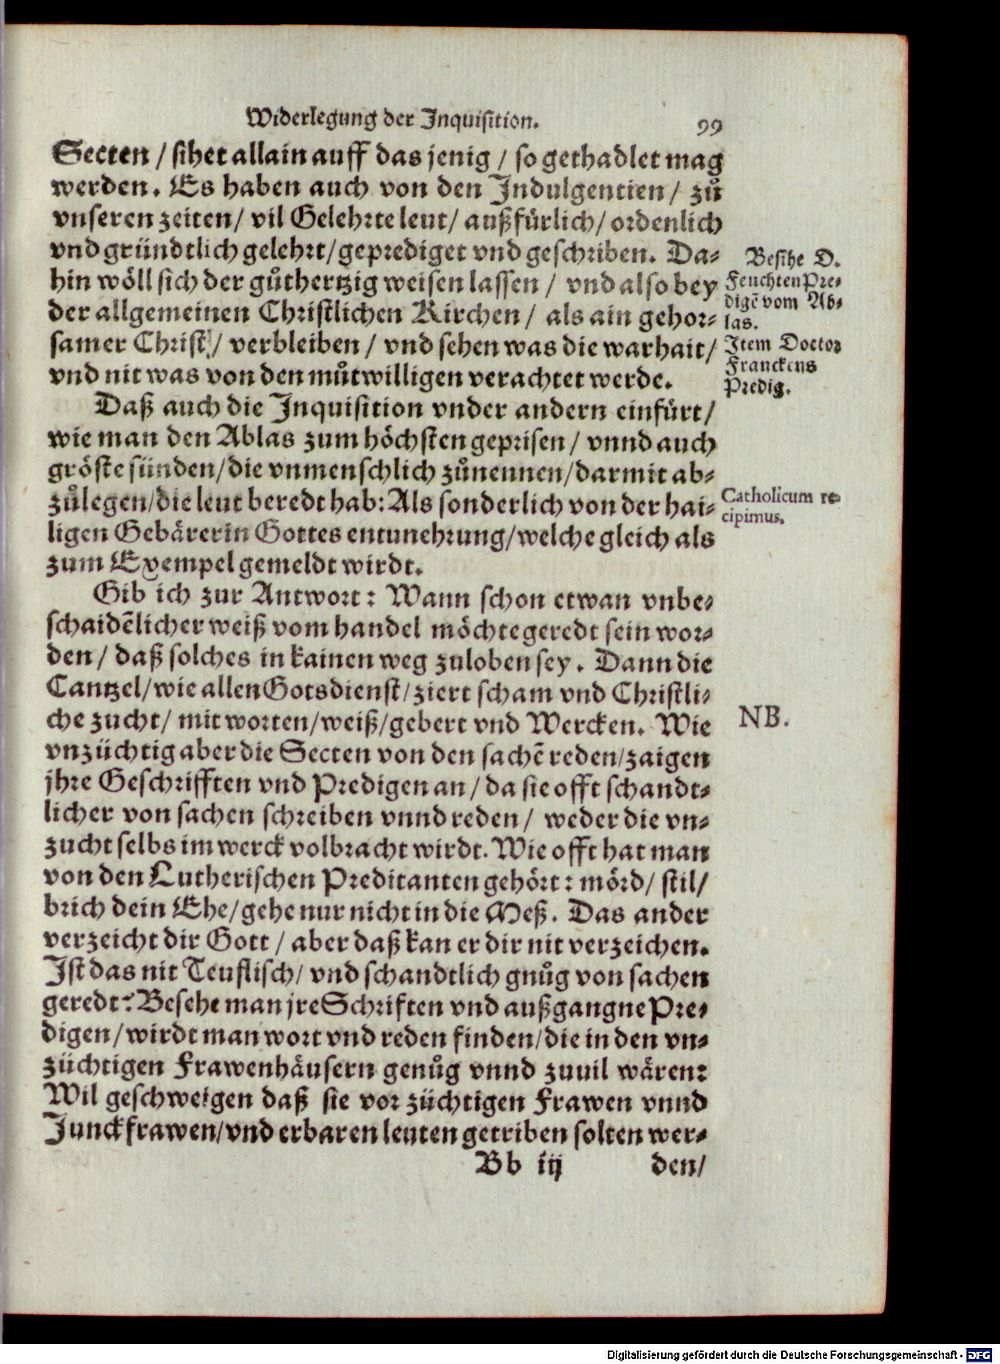 Widerlegung der Inquisition.
99
Secten / sihet allain auff das jenig / so gethadlet mag
werden. Es haben auch von den Indulgentien / zů
vnseren zeiten / vil Gelehrte leut / außfürlich / ordenlich
vnd gründtlich gelehrt / geprediget vnd geschriben. Da-
hin wöll sich der gůthertzig weisen lassen / vnd also bey
der allgemeinen Christlichen Kirchen / als ain gehor-
samer Christ / verbleiben / vnd sehen was die warhait /
vnd nit was von den můtwilligen verachtet werde.
Besihe D.
Feuchten Pre-
digẽ vom Ab-
las.
Item Doctor
Franckens
Predig.
Daß auch die Inquisition vnder andern einfürt /
wie man den Ablas zum höchsten geprisen / vnnd auch
gröste sünden / die vnmenschlich zůnennen / darmit ab-
zůlegen / die leut beredt hab: Als sonderlich von der hai-
ligen Gebärerin Gottes entunehrung / welche gleich als
zum Exempel gemeldt wirdt.
Catholicum re-
cipimus.
Gib ich zur Antwort: Wann schon etwan vnbe-
schaidẽlicher weiß vom handel möchte geredt sein wor-
den / daß solches in kainen weg zuloben sey. Dann die
Cantzel / wie allen Gotsdienst / ziert scham vnd Christli-
che zucht / mit worten / weiß / gebert vnd Wercken. Wie
vnzüchtig aber die Secten von den sachẽ reden / zaigen
jhre Geschrifften vnd Predigen an / da sie offt schandt-
licher von sachen schreiben vnnd reden / weder die vn-
zucht selbs im werck volbracht wirdt. Wie offt hat man
von den Lutherischen Preditanten gehört: mörd / stil /
brich dein Ehe / gehe nur nicht in die Meß. Das ander
verzeicht dir Gott / aber daß kan er dir nit verzeichen.
Ist das nit Teuflisch / vnd schandtlich gnůg von sachen
geredt? Besehe man jre Schriften vnd außgangne Pre-
digen / wirdt man wort vnd reden finden / die in den vn-
züchtigen Frawenhäusern genůg vnnd zuuil wären:
Wil geschweigen daß sie vor züchtigen Frawen vnnd
Junckfrawen / vnd erbaren leuten getriben solten wer-
NB.
Bb iij
den /
Digitalisierung gefördert durch die Deutsche Forschungsgemeinschaft - DFG